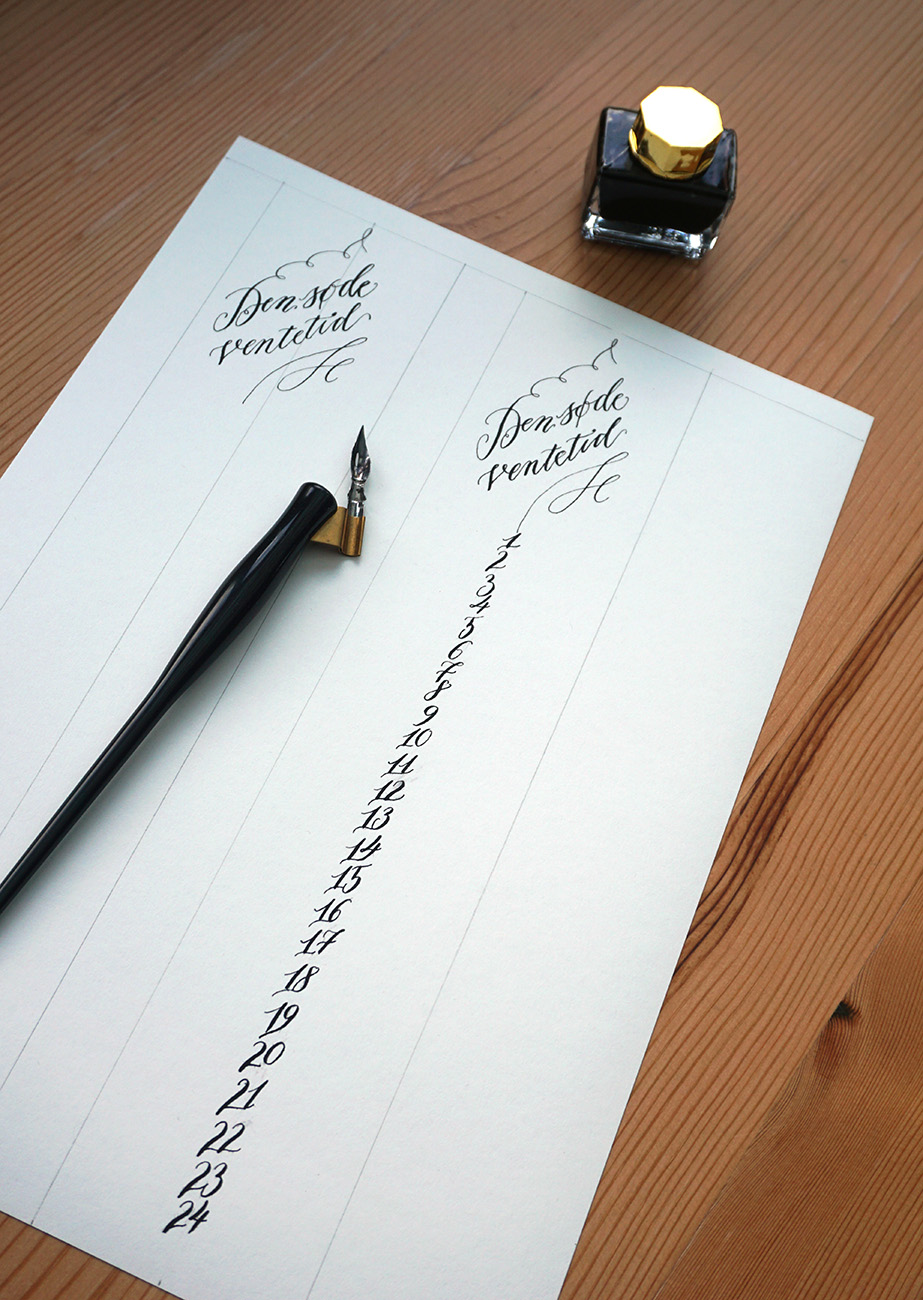 Den søde
ventetid
Den søde
ventetid
1
2
3
4
5
6
7
8
9
10
11
12
13
14
15
16
17
18
19
20
21
22
23
24